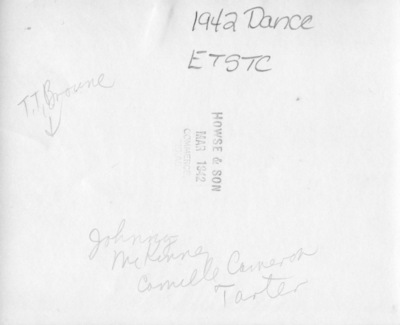 1942 Dance
ETSTC
T.T. Browne
HOWSE & SON
MAR 1942
COMMERCE
Johnny
McKinney
Camille Cameron
Tarter